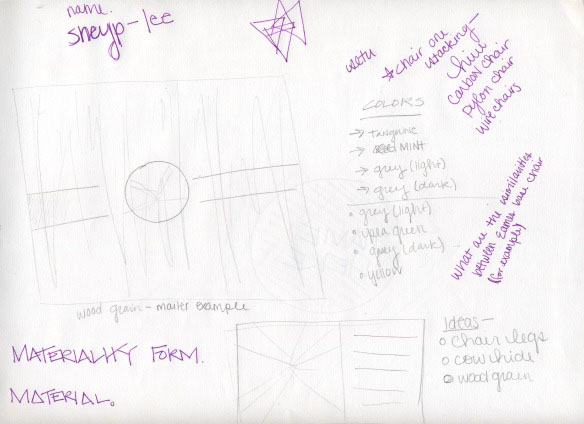 name.
sheyp-lee
* chair one
stacking—
hiiu
carbon chair
pylon chair
wire chairs
COLORS
→ tangerine
→ MINT
→ grey (light)
→ grey (dark)
• grey (light)
• green
• grey (dark)
• yellow
what are the similarities
between Eames base chair
(for example)
wood grain – master example
MATERIALITY FORM.
MATERIAL.
Ideas—
o chair legs
o cowhide
o wood grain